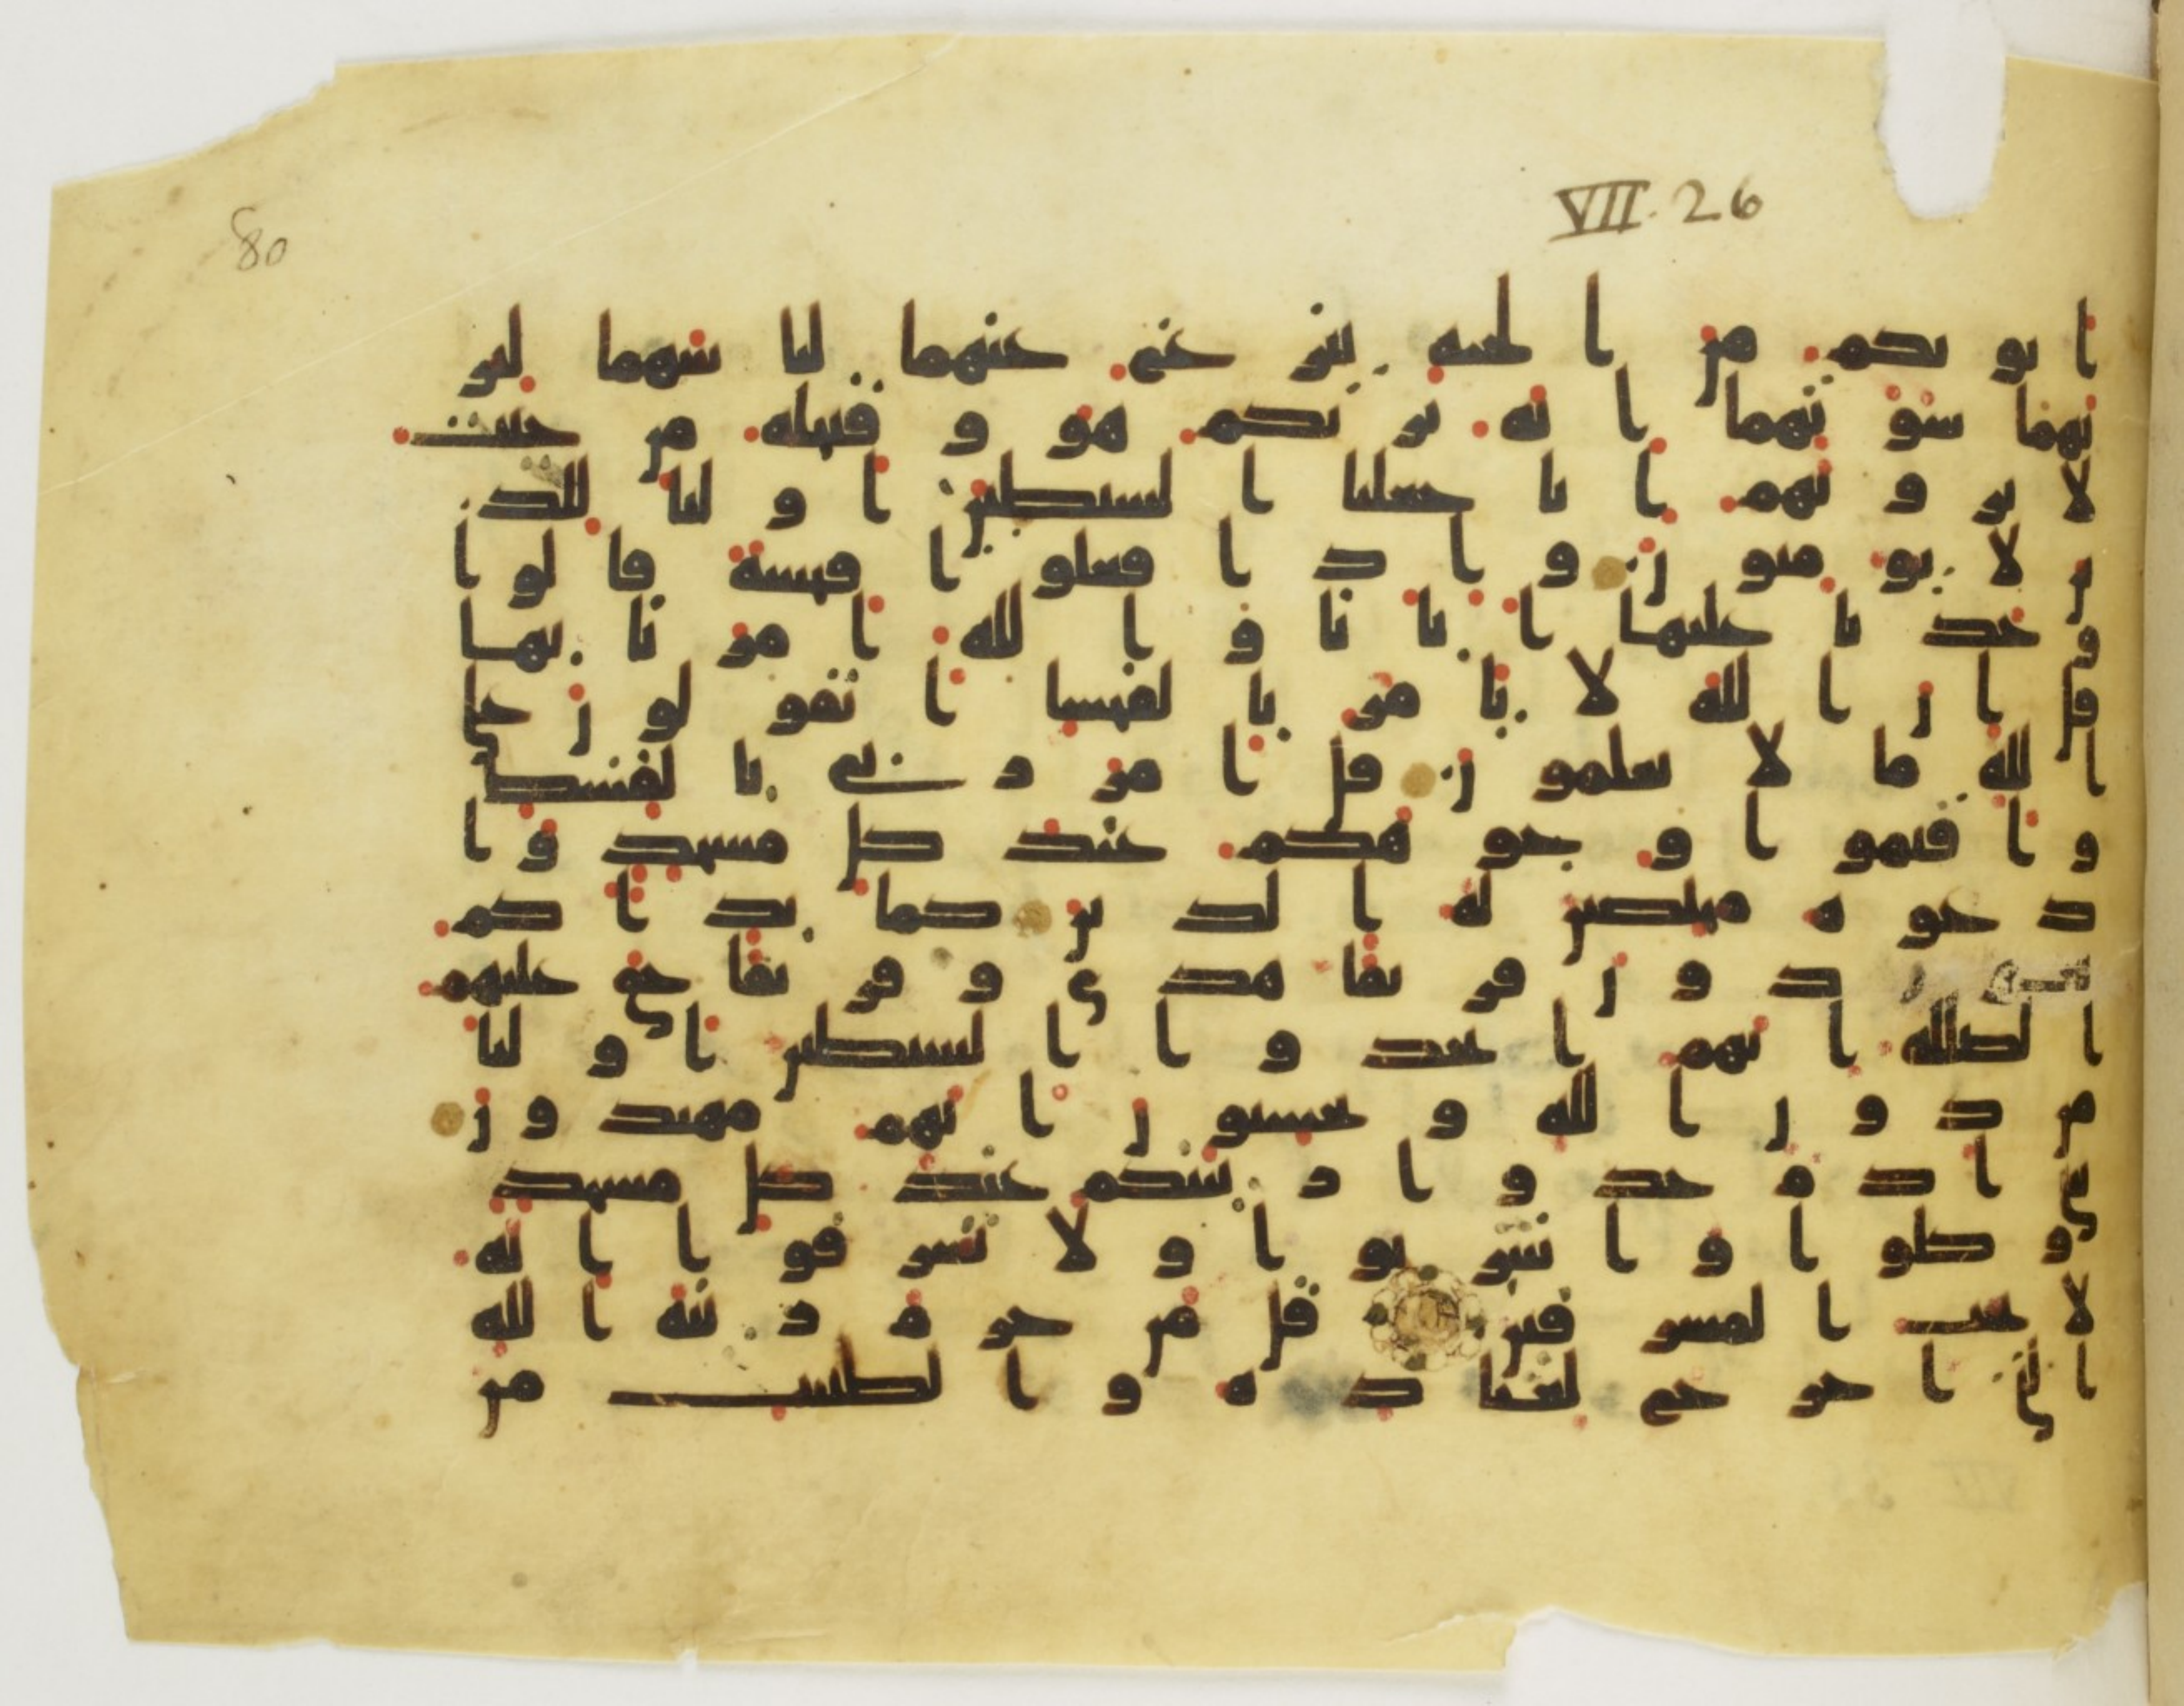 VII. 26
80
ابويكم من الجنة ينزع عنهما لباسهما لير
يهما سوتهما انه يريكم هو وقبيله من حيث
لا ترونهم انا جعلنا الشيطين اوليا للذ
ين لا يومنون واذا فعلوا فحشة قالوا و
جدنا عليها ابانا والله امرنا بها
قل ان الله لا يامر بالفحشا اتقولون على
الله ما لا تعلمون قل امر ربي بالقسط
واقيموا وجوهكم عند كل مسجد وا
دعوه مخلصين له الدين كما بداكم
تعودون فريقا هدى وفريقا حق عليهم
الضللة انهم اتخذوا الشيطين اوليا
من دون الله ويحسبون انهم مهتدون
يبني ادم خذوا زينتكم عند كل مسجد
وكلوا واشربوا ولا تسرفوا انه
لا يحب المسرفين قل من حرم زينة الله
التي اخرج لعباده والطيبت من